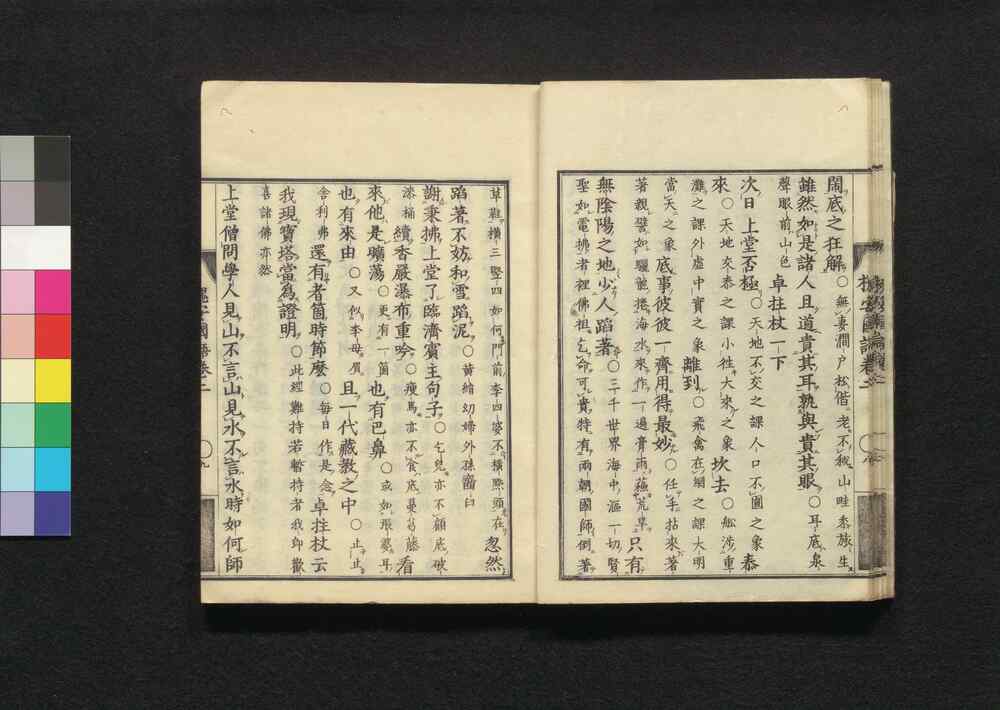 閣底之狂解○無妻澗戸松偕老不娥山畦黍族生
雖然如是諸人且道貴其耳孰與貴其眼○耳底泉
聲眼前山色 卓拄杖一下
次日上堂否極○天地不交之課人口不圓之象泰
來○天地交泰之課小往大來之象坎去○舩渉重
灘之課外虚中實之象離到○飛禽在網之課大明
當天之象底事彼彼一齊用得最妙○任手拈來著
著親譬如驪龍捲海水來作一過膏雨蘓荒旱只有
無陰陽之地少人蹈著○三千世界海中漚一切賢
聖如電拂者裡佛祖乞命可貴特有兩朝國師倒著
草鞋橫三竪四如何門前李四婆不橫㸃頭在忽然
蹈著不妨和雪蹈泥○黃絹幼婦外孫齏臼
謝秉拂上堂了臨濟賓主句子○乞兒亦不顧底破
漆桶續香嚴瀑布重吟○瘦馬亦不食底蔓葛藤看
來他是曠蕩○更有一箇也有巴鼻○或如張婆耳
也有來由○又似李母眉且一代藏教之中○止止
舎利弗還有者箇時節麼○毎日作是念卓拄杖云
我現寶塔當為證明○此經難持若暫持者我卽歡
喜諸佛亦然
上堂僧問學人見山不言山見水不言水時如何師